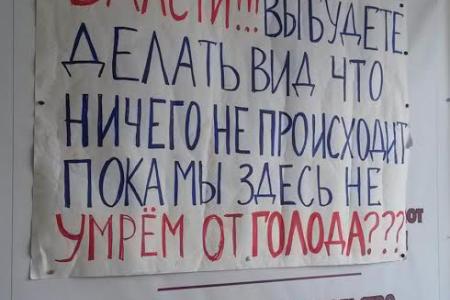 ВЛАСТИ!!! ВЫ БУДЕТЕ
ДЕЛАТЬ ВИД ЧТО
НИЧЕГО НЕ ПРОИСХОДИТ
ПОКА МЫ ЗДЕСЬ НЕ
УМРЁМ ОТ ГОЛОДА???
ОТ